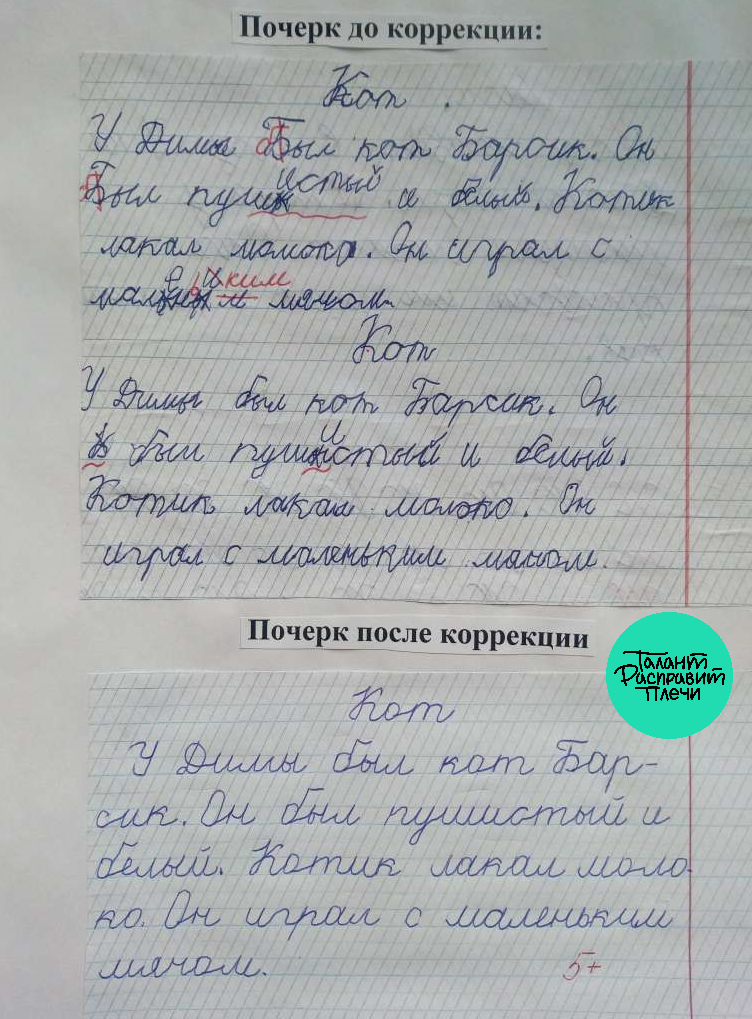 Почерк до коррекции:
Кот.
У Димы Был кот Барсик. Он
Был пушистый и белый. Котик
лакал молоко. Он играл с
маленьким мячом.
Кот
У Димы был кот Барсик. Он
был пушистый и белый.
Котик лакал молоко. Он
играл с маленьким мячом.
Почерк после коррекции
Талант
Расправит
Плечи
Кот
У Димы был кот Бар-
сик. Он был пушистый и
белый. Котик лакал моло-
ко. Он играл с маленьким
мячом.
5+